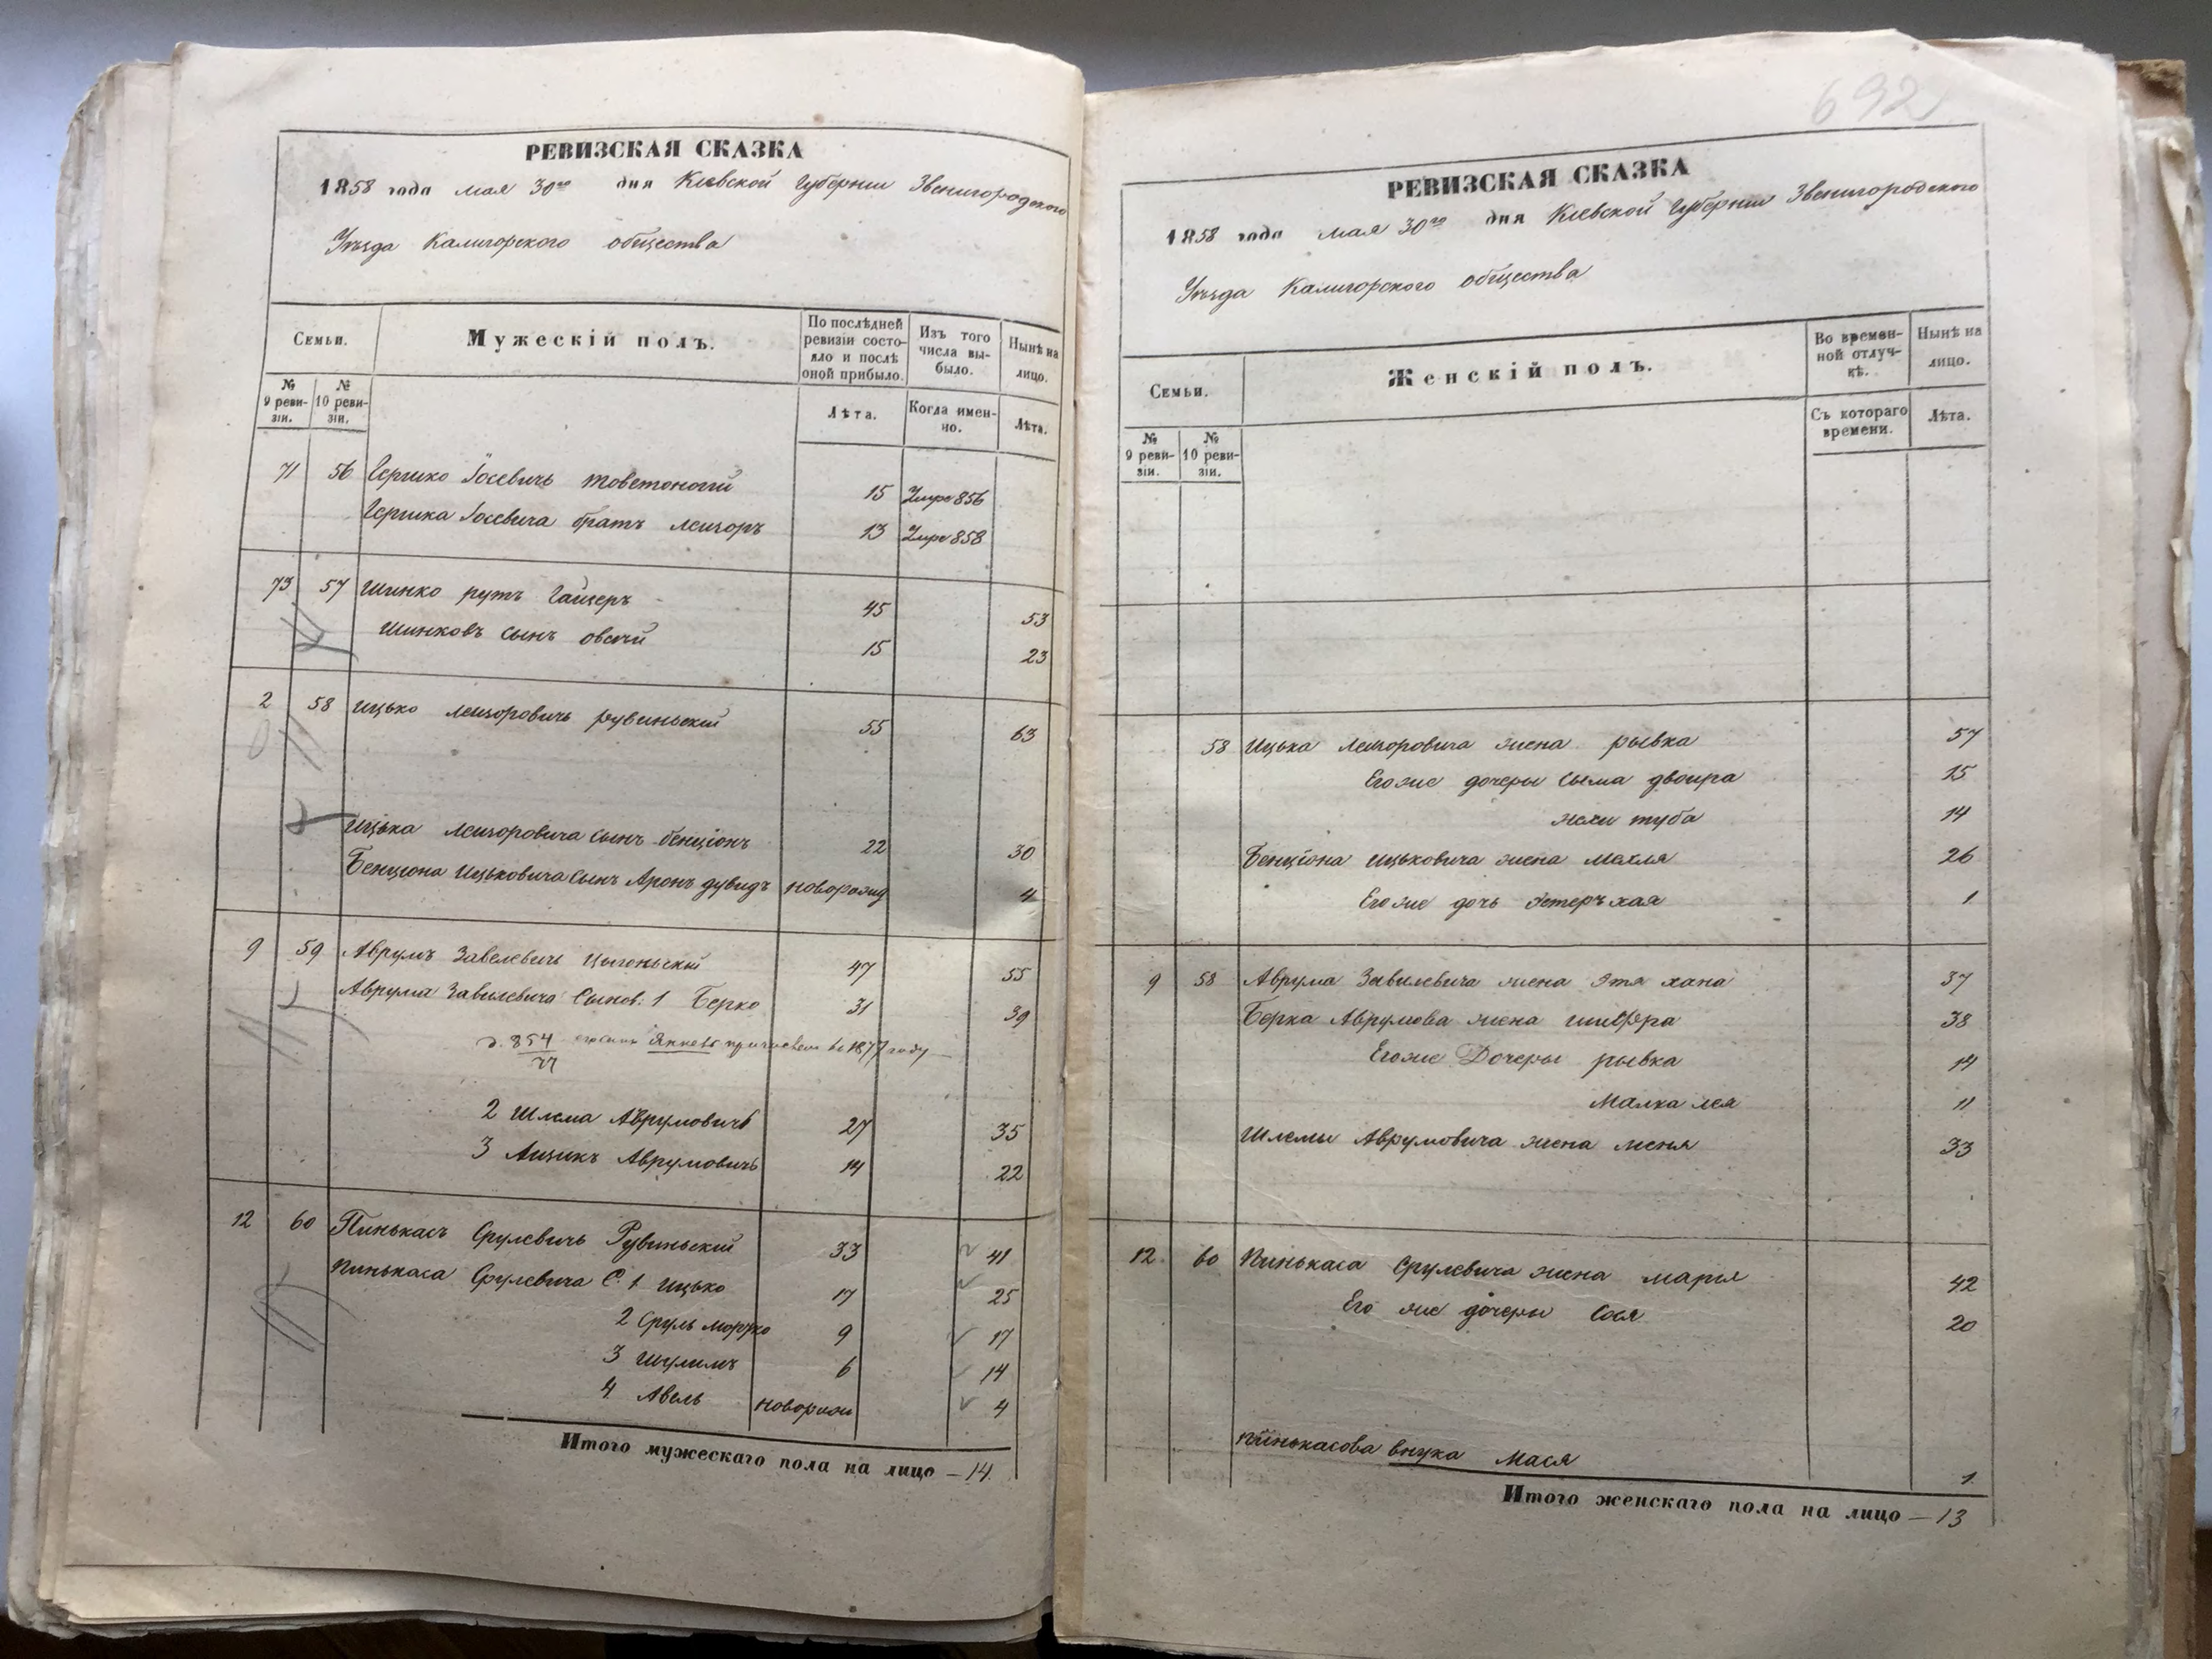 РЕВИЗСКАЯ СКАЗКА
1858 года мая 30го дня Кіевской Губерніи Звенигородского
Уѣзда Калигорского общества
Семьи.
Мужескій полъ.
По послѣдней ревизіи состояло и послѣ оной прибыло.
Изъ того числа выбыло.
Нынѣ на лицо.
№ 9 ревизіи.
№ 10 ревизіи.
Лѣта.
Когда именно.
Лѣта.
71 56 Гершко Іосевичь 15 Умре 856
Гершка Іосевича братъ Лейзоръ 13 Умре 858
73 57 Шинко рутъ Гайцеръ 45 53
Шинковъ сынъ овсѣй 15 23
2 58 Ицько Лейзоровичь рувиньскій 55 63
Ицька Лейзоровича сынъ бенціонъ 22 30
Бенціона Ицьковича сынъ Аронъ дувидъ новорожд 4
9 59 Аврумъ Завелевичь Цыгоньскій 47 55
Аврума Завилевича Сынов. 1 Берко 31 39
854 1877 году
2 Шлема Аврумовичь 27 35
3 Айзикъ Аврумовичь 14 22
12 60 Пинькасъ Срулевичь Рувиньскій 33 41
Пинькаса Срулевича С. 1 Ицько 17 25
2 Сруль Мортко 9 17
3 Шулимъ 6 14
4 Авель новорож 4
Итого мужескаго пола на лицо — 14.
692
РЕВИЗСКАЯ СКАЗКА
1858 года мая 30го дня Кіевской Губерніи Звенигородского
Уѣзда Калигорского общества
Семьи.
Женскій полъ.
Во временной отлучкѣ.
Нынѣ на лицо.
№ 9 ревизіи.
№ 10 ревизіи.
Съ котораго времени.
Лѣта.
58 Ицька Лейзоровича жена рывка 57
Его же дочеры Сыма двойра 15
туба 14
Бенціона Ицьковича жена Махля 26
Его же дочь Эстеръ хая 1
9 58 Аврума Завилевича жена Этя хана 37
Берка Аврумова жена шифра 38
Его же Дочеры рывка 14
Малка лея 11
Шлемы Аврумовича жена Меня 33
12 60 Пинькаса Срулевича жена марья 42
Его же дочеры Сося 20
Пинькасова внука Мася 1
Итого женскаго пола на лицо — 13